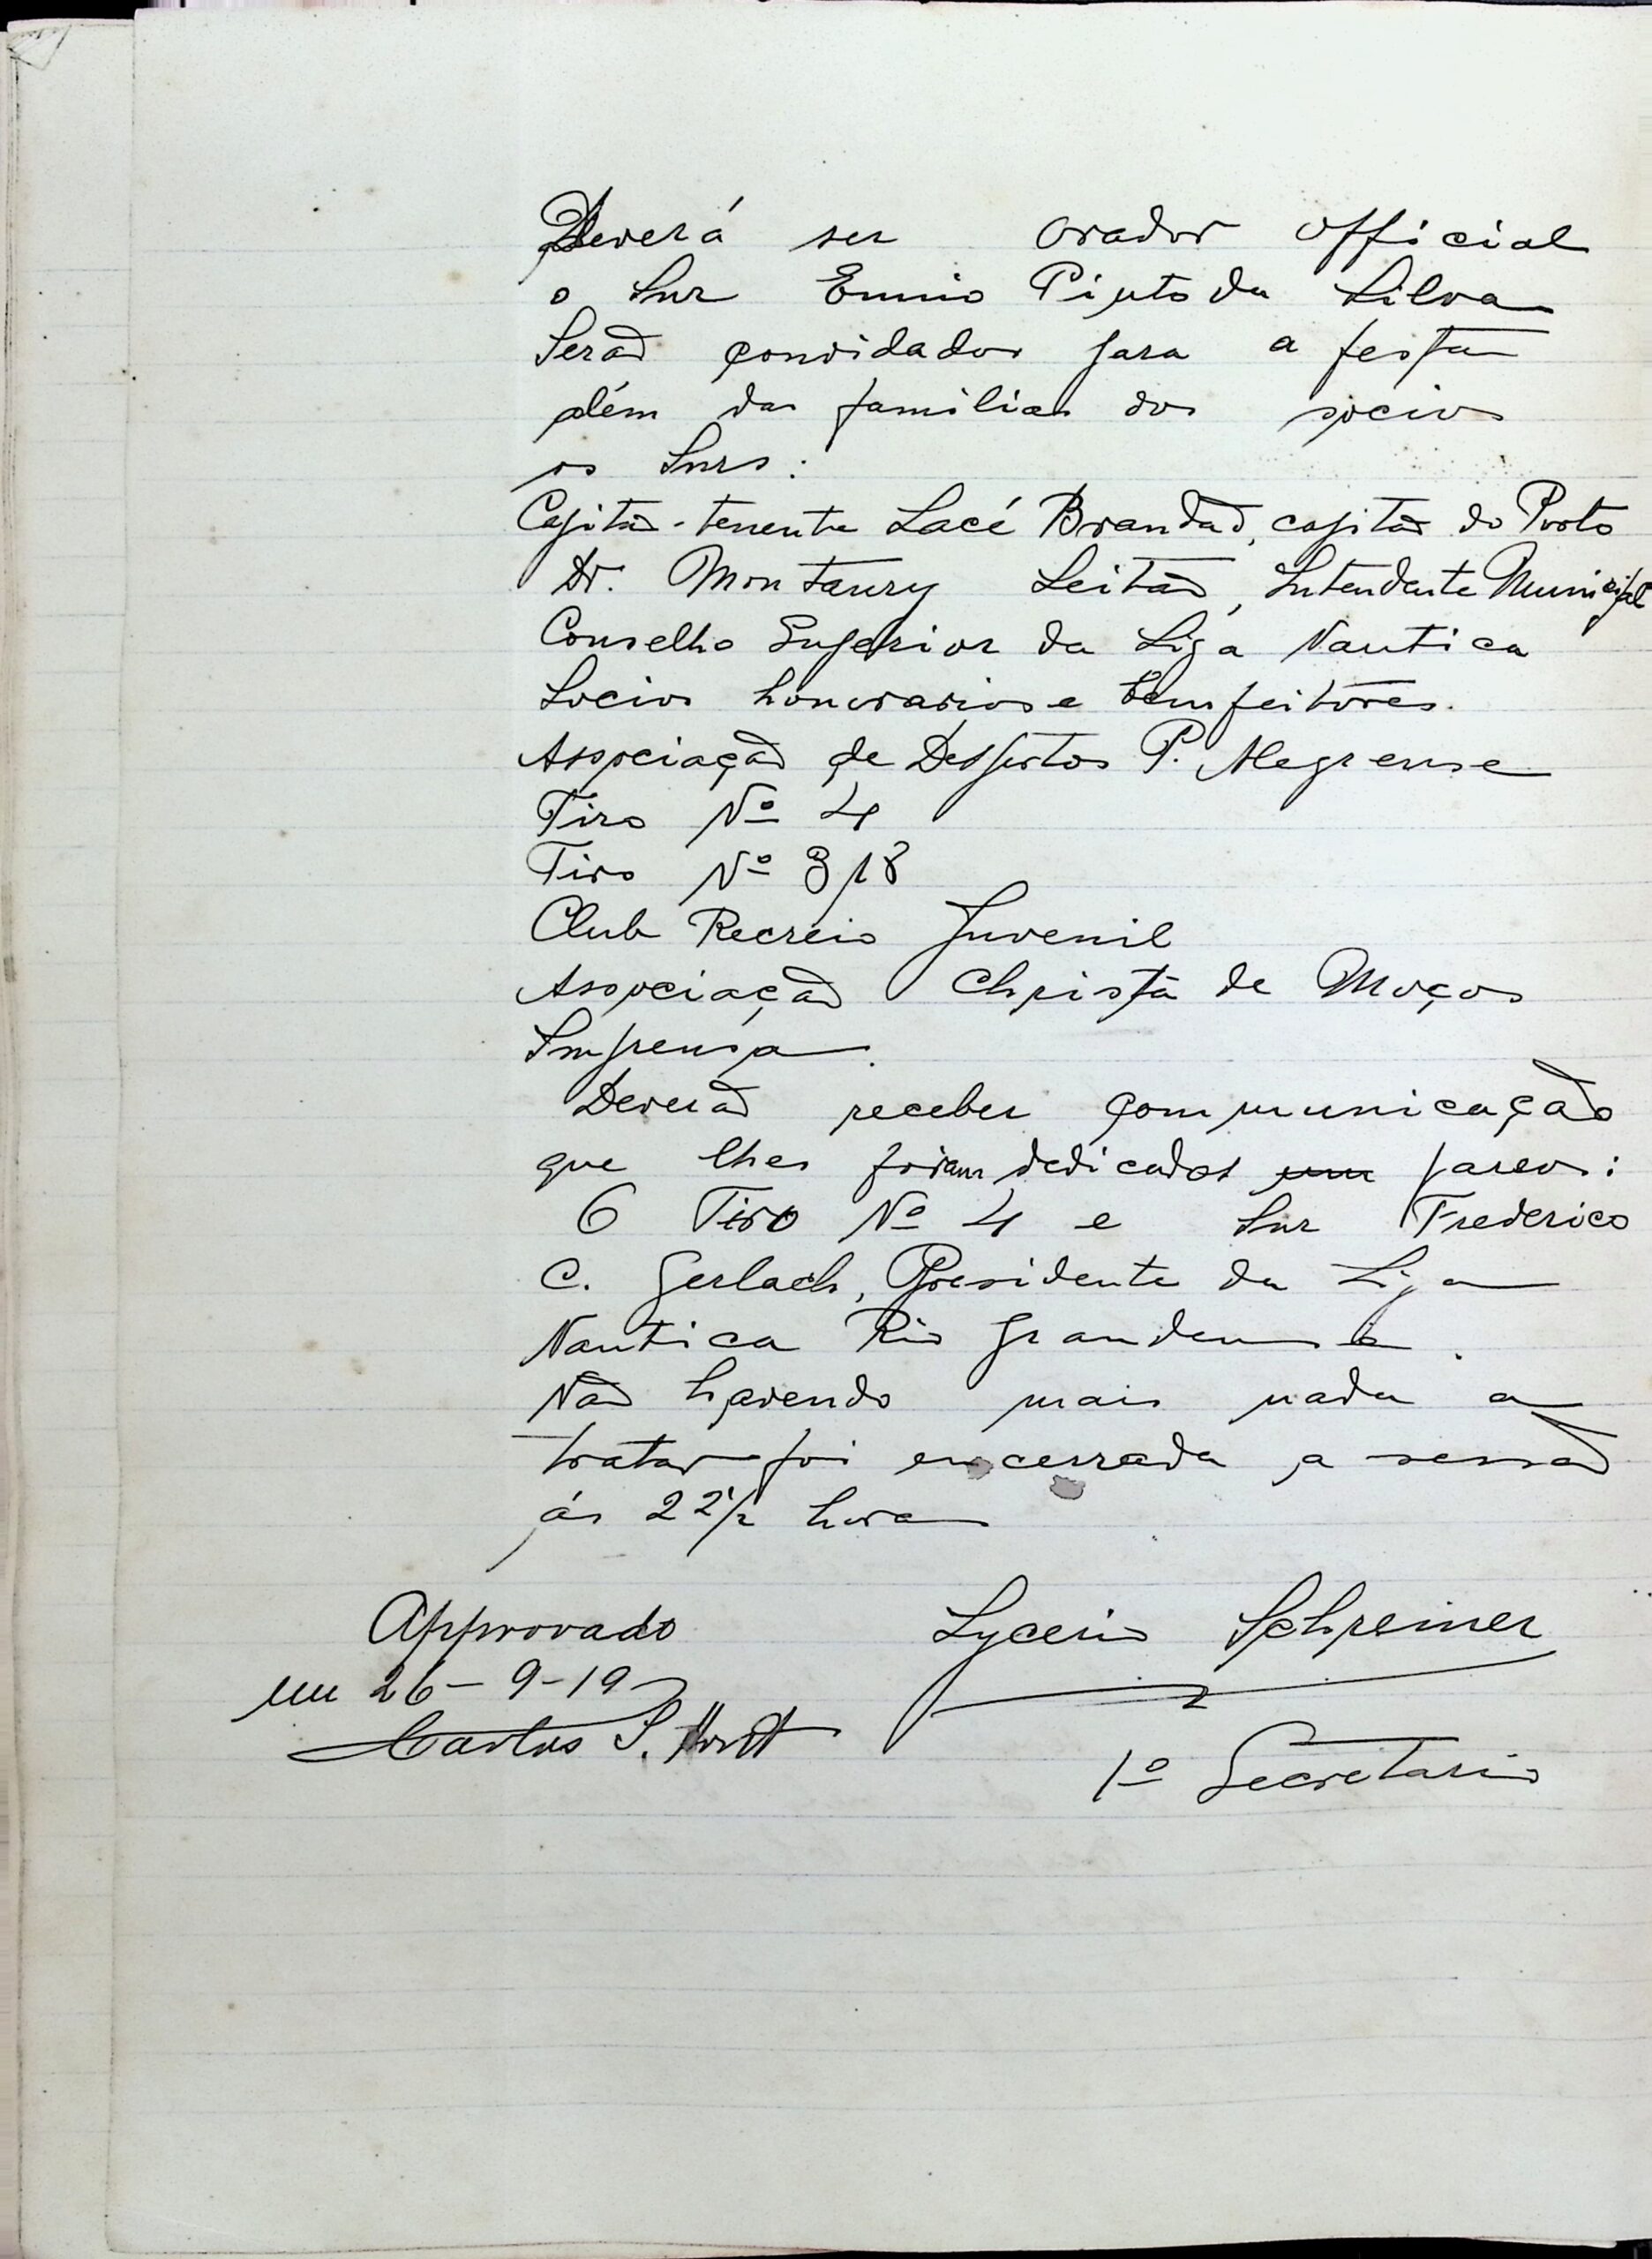 Deverá ser orador official
o Snr Ennio Pinto da Silva
Serão convidados para a festa
além das familias dos socios
os Snrs:
Capitão-tenente Lacé Brandão, capitão do Porto
Dr. Montaury Leitão, Intendente Municipal
Conselho Superior da Liga Nautica
Socios honorarios e bemfeitores.
Associação de Desportos P. Alegrense
Tiro Nº 4
Tiro Nº 318
Club Recreio Juvenil
Associação Christã de Moços
Imprensa.
Deverão receber communicação
que lhes foram dedicados um pareos:
O Tiro Nº 4 e Snr Frederico
C. Gerlach, Presidente da Liga
Nautica Rio Grandense.
Não havendo mais nada a
tratar foi encerrada a sessão
ás 22 1/2 horas
Approvado Lycerio Schreiner
em 26-9-19
Carlos S.
1º Secretario